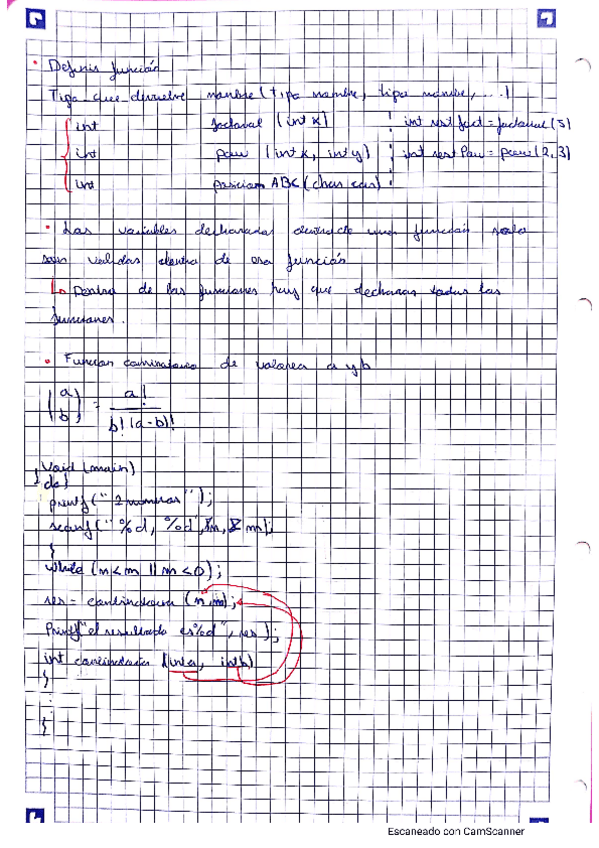 • Definir función
Tipo_que_devuelve nombre (tipo nombre, tipo nombre, ...)
int factorial (int x) int restfact = factorial (5)
int pow (int x, int y) int rest Pow = pow (2, 3)
int posicion ABC (char car)
• Las variables declaradas dentro de una función solo
son validas dentro de esa función
↳ Dentro de las funciones hay que declarar todas las
funciones.
• Funcion combinatoria de valores a y b
(a b) = a! / b! (a-b)!
Void (main)
{ do {
printf ("2 numeros");
scanf ("%d, %d", &n, &m);
}
while (n<m || m<0);
res = combinatoria (n,m);
Printf "el resultado es %d", res );
int combinatoria (int a, int b)
{
:
}
Escaneado con CamScanner